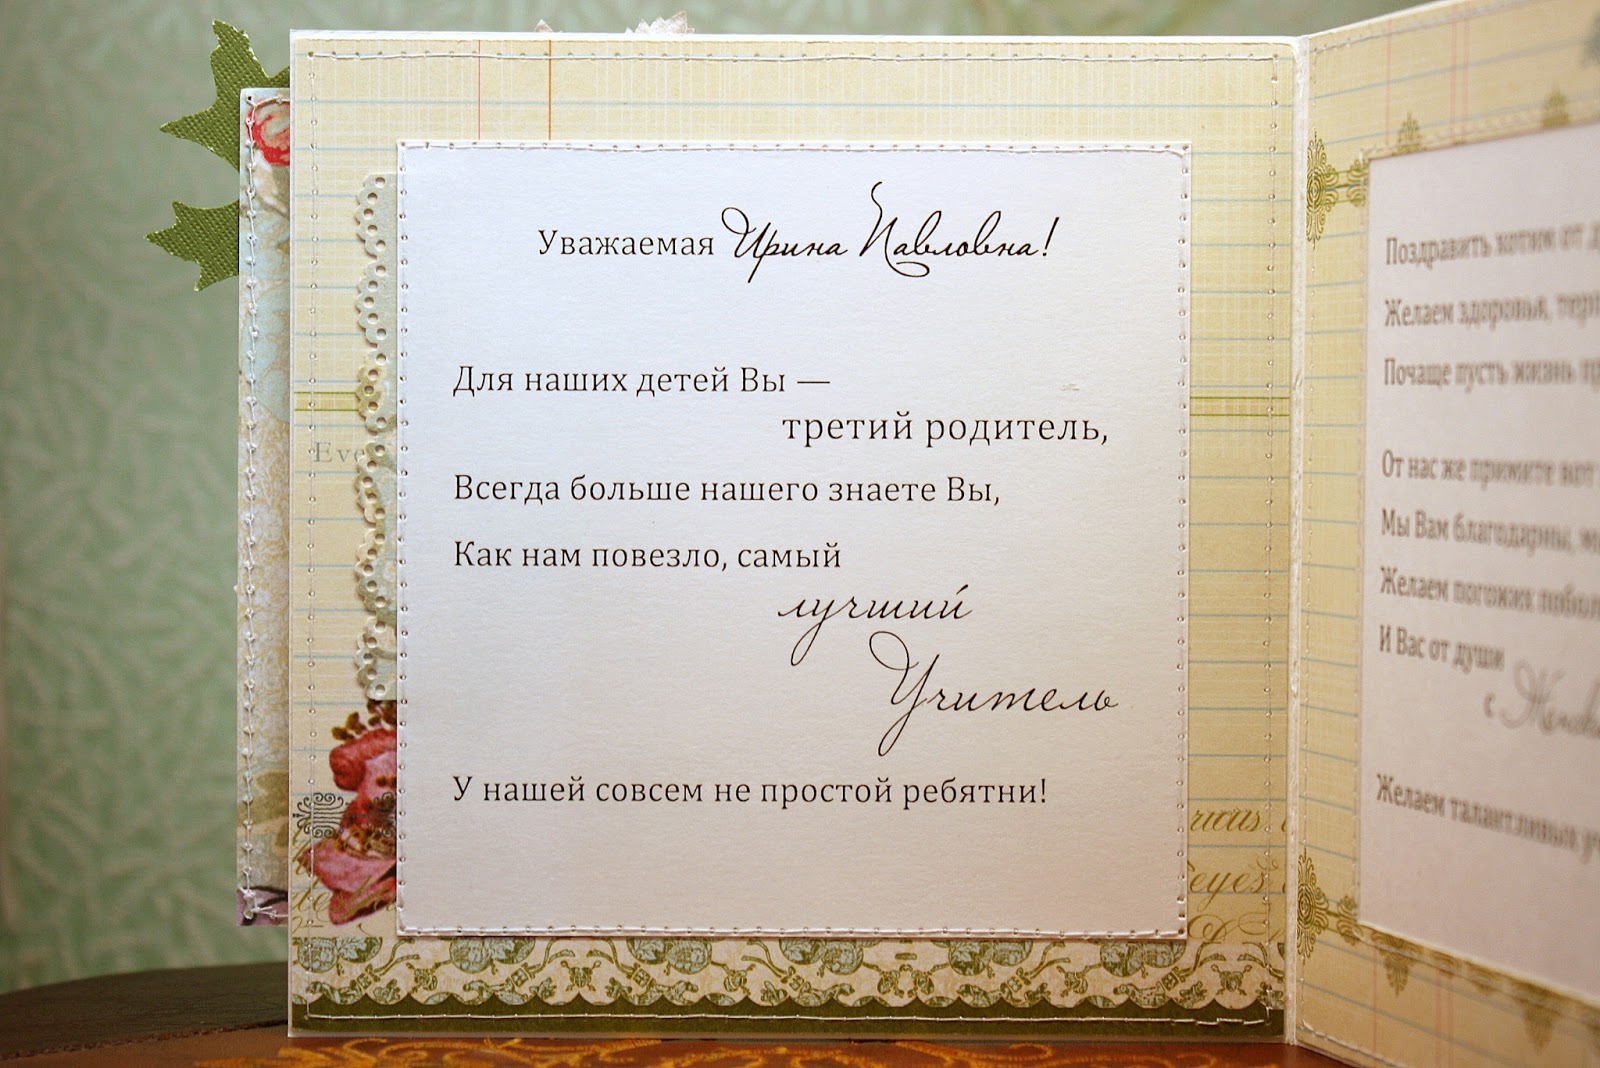 Уважаемая Ирина Павловна!
Для наших детей Вы —
третий родитель,
Всегда больше нашего знаете Вы,
Как нам повезло, самый
лучший
Учитель
У нашей совсем не простой ребятни!
Поздравить хотим от
Желаем здоровья,
Почаще пусть жизнь
От нас же примите вот
Мы Вам благодарны,
Желаем погожих
И Вас от души
с
Желаем талантливых
Eve
eyes